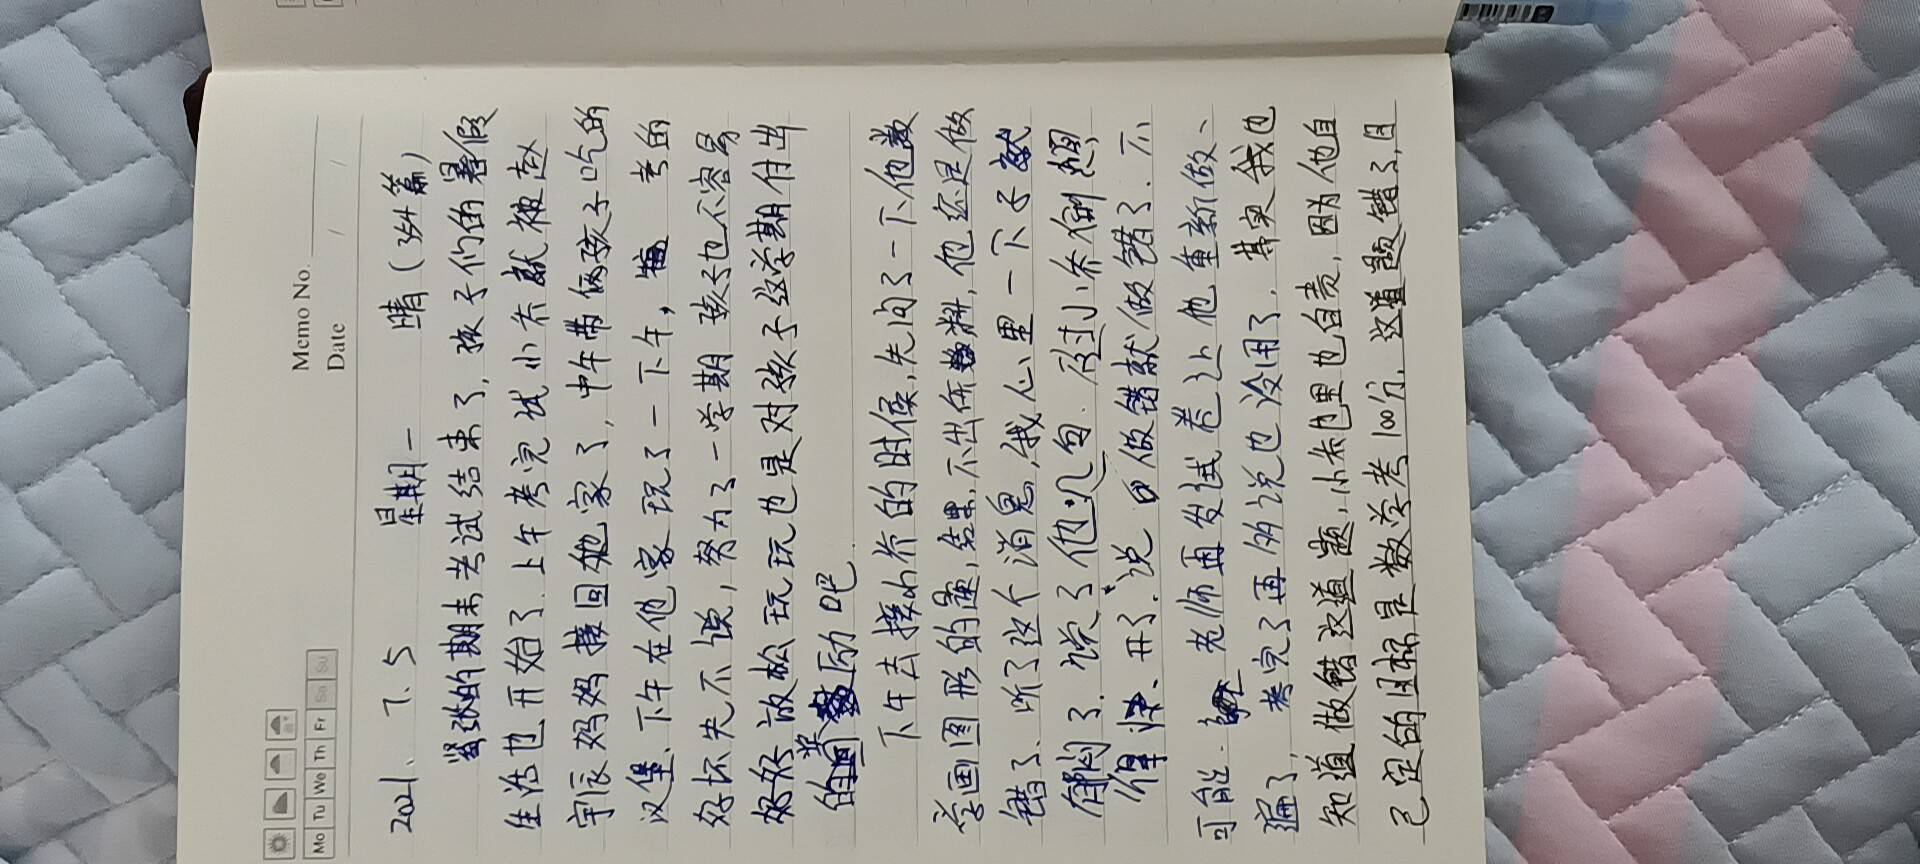 Memo No.
Date / /
Mo Tu We Th Fr Sa Su
2021、7、5 星期一 晴(354篇)
紧张的期末考试结束了,孩子们的暑假
生活也开始了.上午考完试小乔就被赵
宇辰妈妈接回她家了,中午带俩孩子吃的
汉堡、下午在他家玩了一下午, 考的
好坏先不说,努力了一学期孩子也不容易
好好放松玩玩也是对孩子这学期付出
的奖励吧.
下午去接小乔的时候,先问了一下他数
学画图形的题,结果不出所料,他还是做
错了、听了这个消息,我心里一下子就
郁闷了.说了他几句.不过小乔倒想
得快、开了.说 做错就做错了.不
可能 老师再发试卷让他重新做、
遍了,考完了再所说也没用了,其实我也
知道做错这道题,小乔心里也自责,因为他自
己定的目标是数学考100分,这道题错了,目